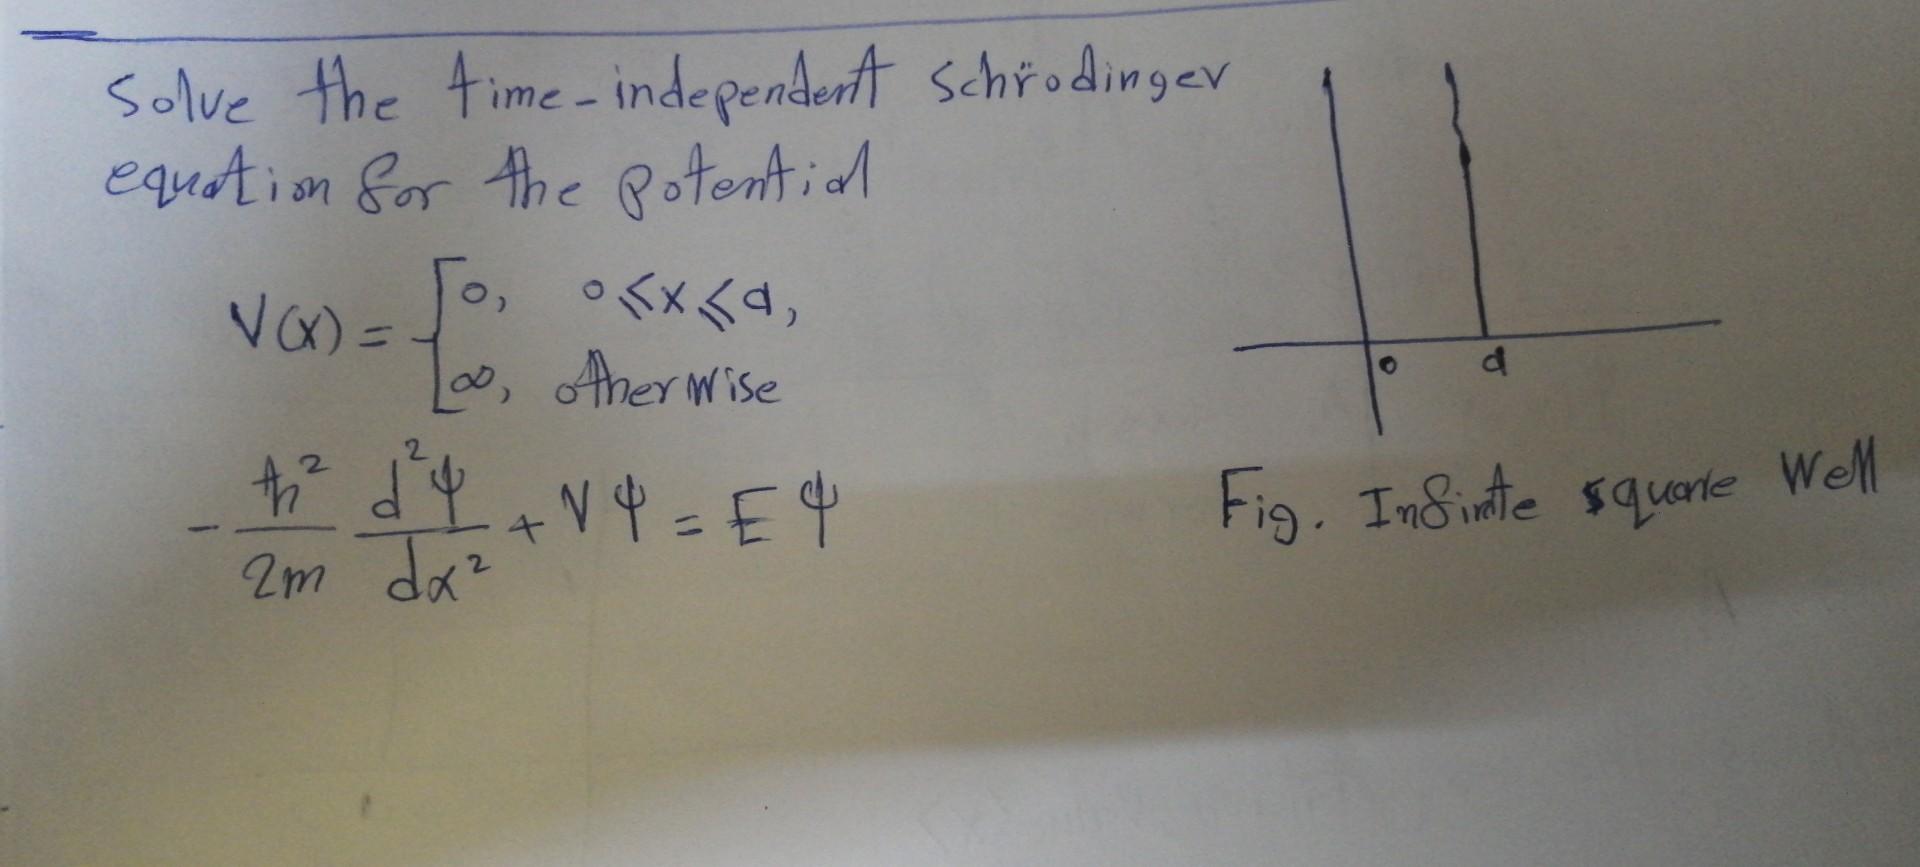 Solve the time-independent Schrödinger
equation for the potential
V(x) = { 0, 0 ≤ x ≤ a,
∞, otherwise
- ħ²/2m d²ψ/dx² + Vψ = Eψ
0 a
Fig. Infinite square Well